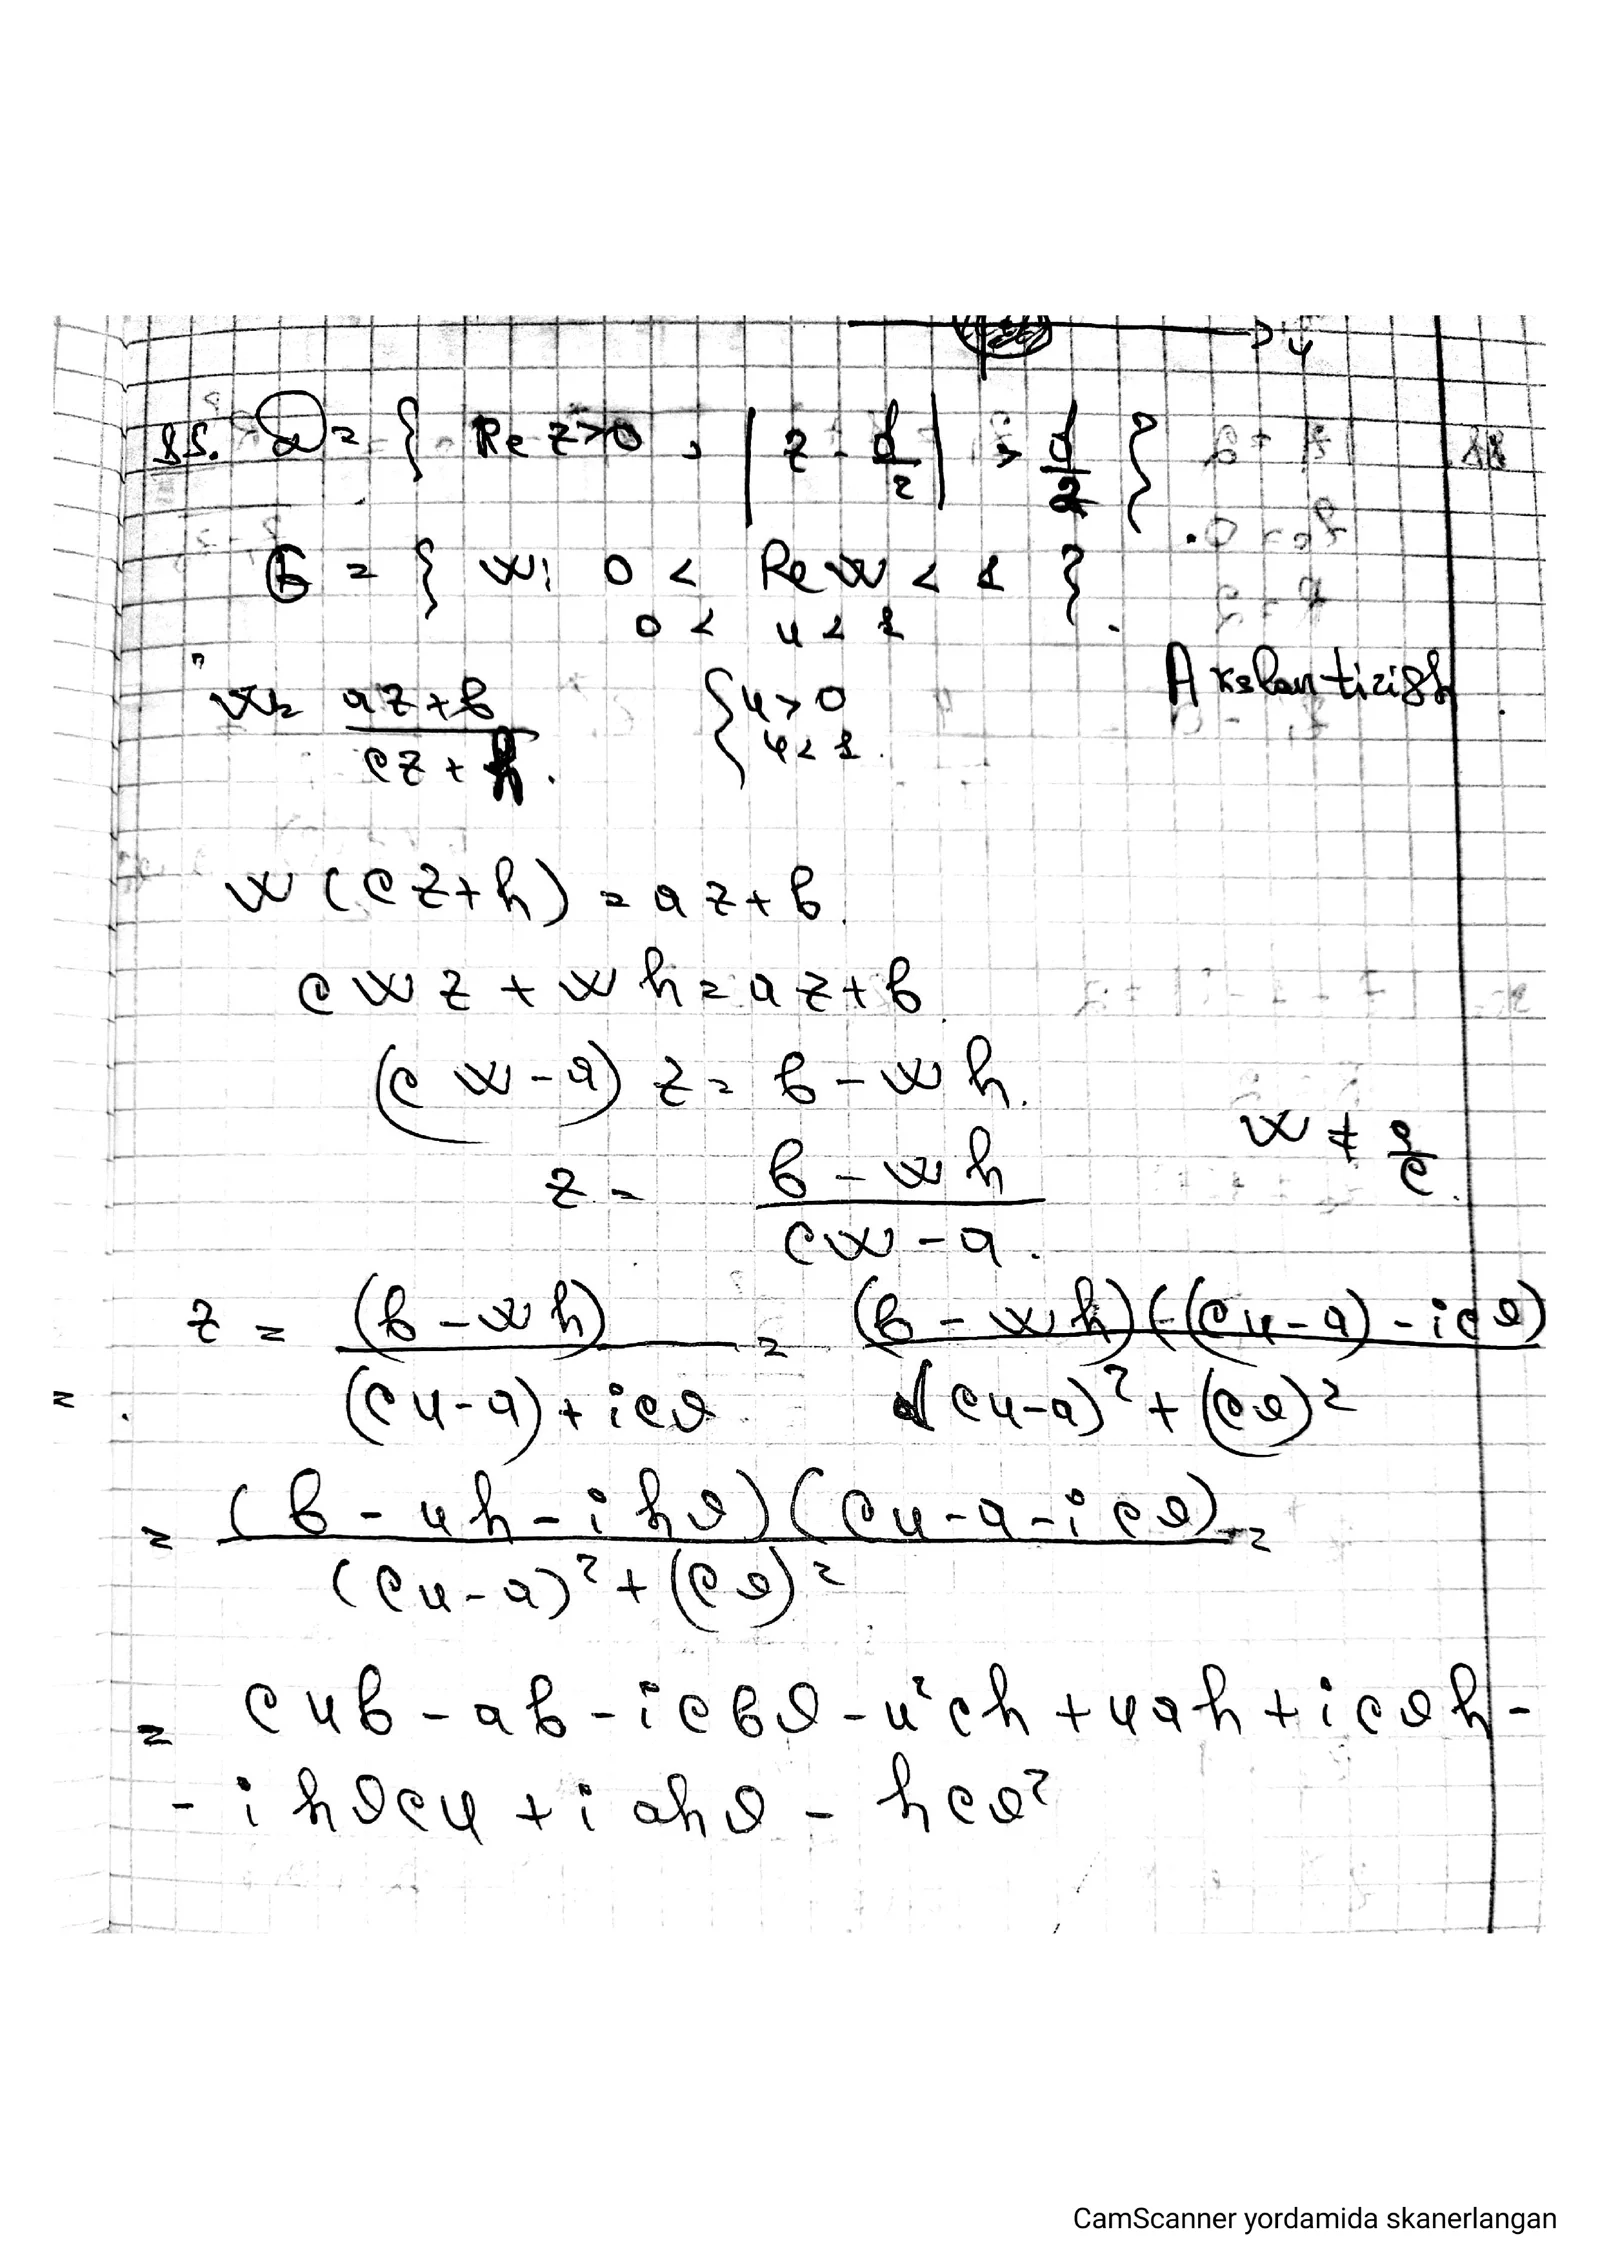 u
88. D = { Re z>0, | z - d/2 | > d/2 }.
G = { w: 0 < Re w < 1 }.
0 < u < 1
w = (az+b)/(cz+h).
{ u>0
u<1.
Akslantirish.
w(cz+h) = az+b.
cwz + wh = az+b.
(cw-a) z = b - wh.
z = (b - wh)/(cw - a).
w ≠ a/c.
z = (b - wh)/((cu-a)+icv) = (b - wh)((cu-a) - icv)/((cu-a)²+(cv)²)
=
= (b - uh - ihv)(cu-a-icv)/((cu-a)²+(cv)²) =
= cub - ab - icbv - u²ch + uah + icvh -
- ihvcu + iahv - hcv²
CamScanner yordamida skanerlangan